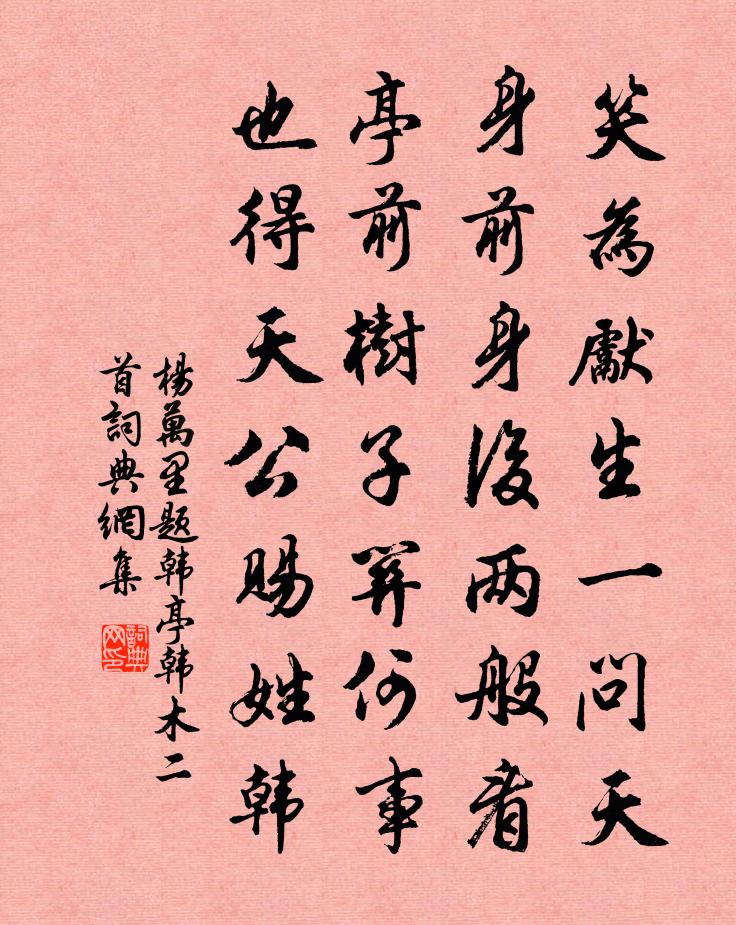 笑為獻生一問天
身前身後两般看
亭前樹子關何事
也得天公賜姓韩
楊萬里题韩亭韩木二
首詞典網集
詞典网印